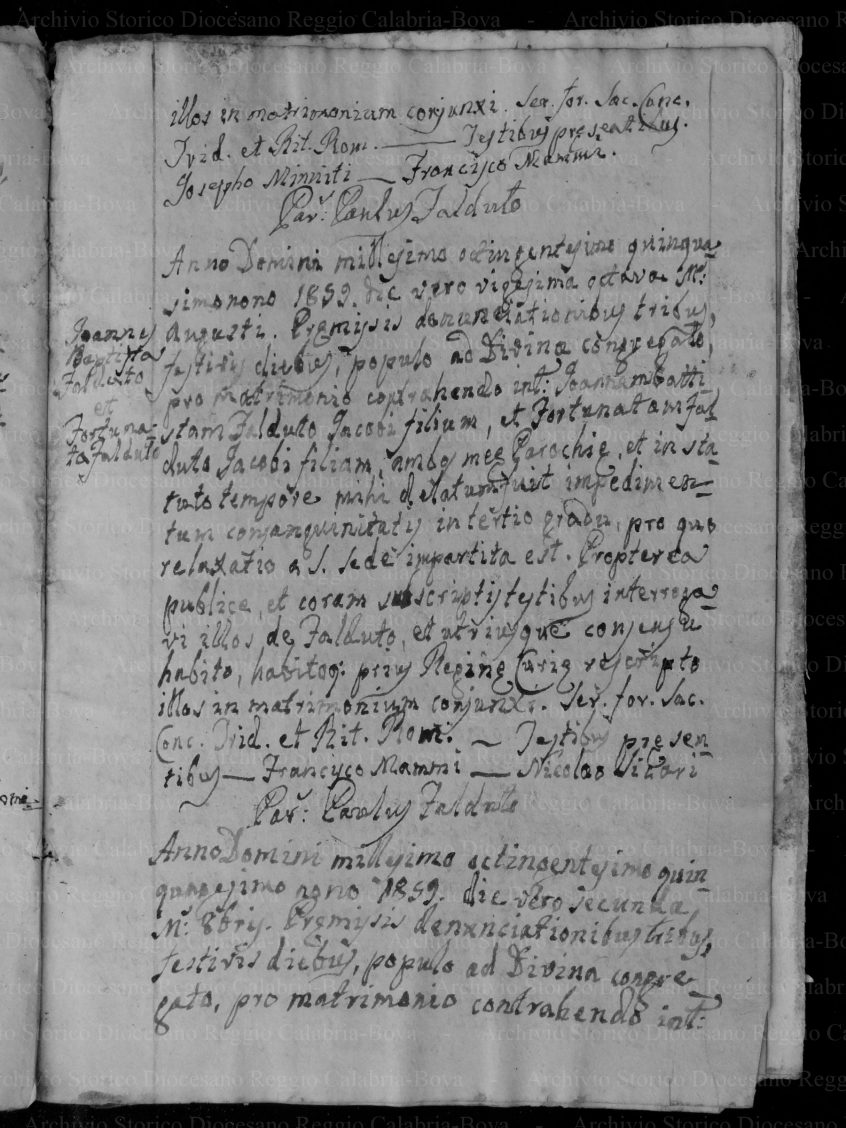 illos in matrimonium conjunxi. Ser. for. Sac. Conc.
Trid. et Rit. Rom. — Testibus presentibus.
Josepho Minniti — Francisco Mammi.
Par: Paulus Falduto
Anno Domini millesimo octingentesimo quinqua-
simonono 1859. die vero vigesima octava M:
Augusti. Premissis denunciationibus tribus,
festivis diebus, populo ad Divina congregato,
pro matrimonio contrahendo int: Joannam Batti-
stam Falduto Jacobi filium, et Fortunatam Fal-
duto Jacobi filiam, ambos mee Parochie, et in sta-
tuto tempore mihi delatum fuit impedimen-
tum consanguinitatis in tertio gradu, pro quo
relaxatio a S. Sede impartita est. Propterea
publice, et coram subscriptis testibus interroga-
vi illos de Falduto, et utriusque consensu
habito, habitoq: prius Regine Curie rescripto
illos in matrimonium conjunxi. Ser. for. Sac.
Conc. Trid. et Rit. Rom. — Testibus presen-
tibus — Francisco Mammi — Nicolao Sitari
Par: Paulus Falduto
Anno Domini millesimo octingentesimo quin-
quagesimo nono 1859. die vero secunda
M: 8bris. Premissis denunciationibus tribus,
festivis diebus, populo ad Divina congre-
gato, pro matrimonio contrahendo int:
Joannes
Baptista
Falduto
et
Fortuna-
ta Falduto
Archivio Storico Diocesano Reggio Calabria-Bova